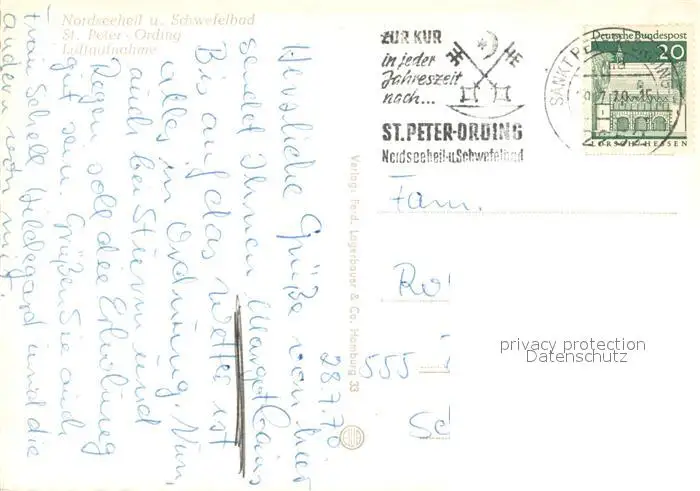 Nordseeheil u. Schwefelbad
St. Peter-Ording
Luftaufnahme
28.7.70
Herzliche Grüße von hier
sendet Ihnen Margot
Bis auf das Wetter ist
alles in Ordnung. Nun,
auch bei Sturm und
Regen soll die Erholung
gut sein. Grüßen Sie auch
Frau Schell Hildegard und die
andern von mir.
Verlag: Ferd. Lagerbauer & Co. Hamburg 33
ZUR KUR
in jeder
Jahreszeit
nach...
ST. PETER-ORDING
Nordseeheil-u.Schwefelbad
SANKT PE
Deutsche Bundespost
20
LORSCH/HESSEN
Fam.
Ro
555
Sc
privacy protection
Datenschutz